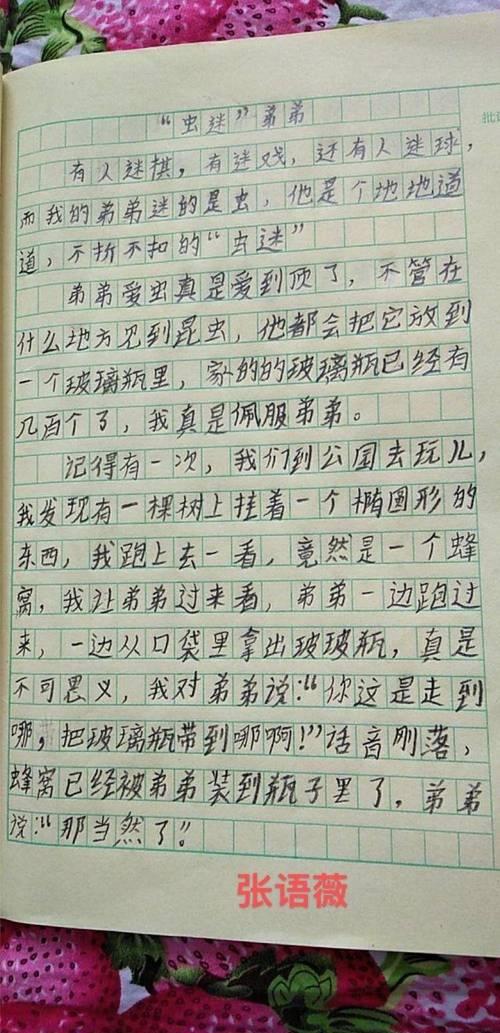 “虫迷”弟弟
有人迷棋，有迷戏，还有人迷球，
而我的弟弟迷的是虫，他是个地地道
道，不折不扣的“虫迷”
弟弟爱虫真是爱到顶了，不管在
什么地方见到昆虫，他都会把它放到
一个玻璃瓶里，家的的玻璃瓶已经有
几百个了，我真是佩服弟弟。
记得有一次，我们到公园去玩儿，
我发现有一棵树上挂着一个椭圆形的
东西，我跑上去一看，竟然是一个蜂
窝，我让弟弟过来看，弟弟一边跑过
来，一边从口袋里拿出玻玻瓶，真是
不可思义，我对弟弟说：“你这是走到
哪，把玻璃瓶带到哪啊！”话音刚落，
蜂窝已经被弟弟装到瓶子里了，弟弟
说：“那当然了！”
张语薇